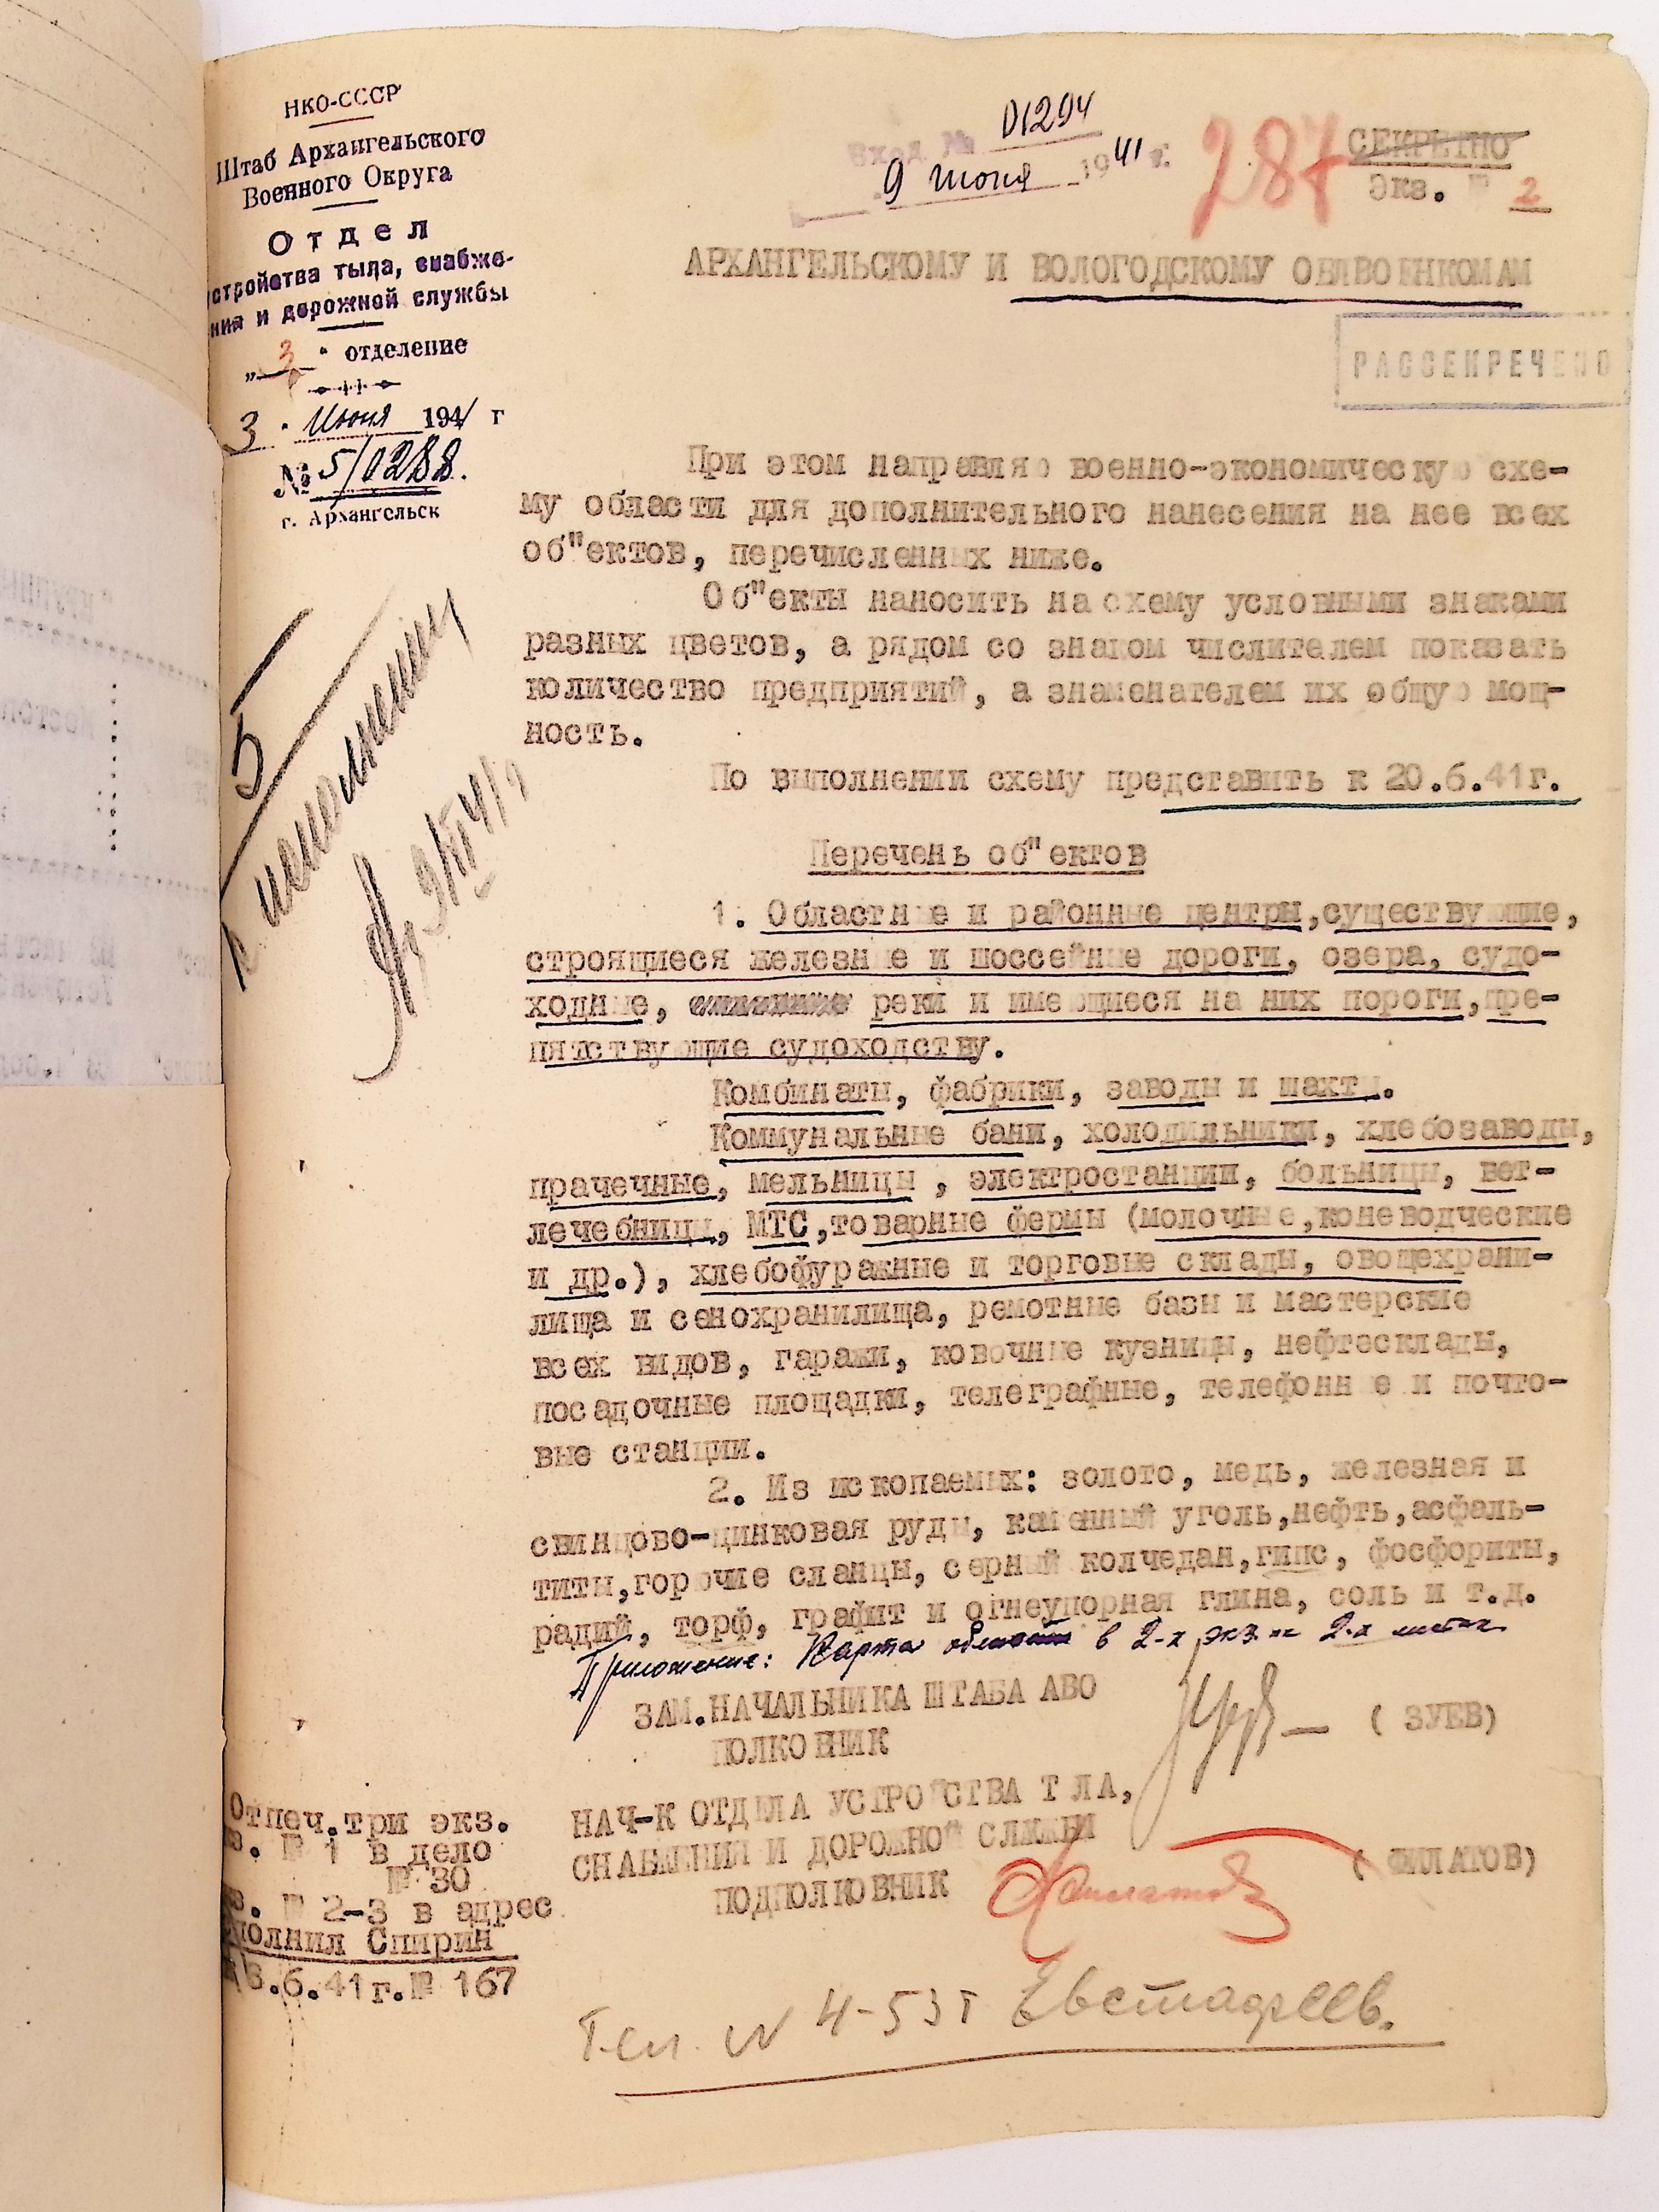 НКО-СССР
Штаб Архангельского
Военного Округа
Отдел
устройства тыла, снабже-
ния и дорожной службы
„ 3 " отделение
3 " Июня 1941 г
№ 5/0288.
г. Архангельск
Вход. № 01294
9 июня 1941 г.
287
СЕКРЕТНО
Экз. № 2
АРХАНГЕЛЬСКОМУ И ВОЛОГОДСКОМУ ОБЛВОЕНКОМАМ
РАССЕКРЕЧЕНО
При этом направляю военно-экономическую схе-
му области для дополнительного нанесения на нее всех
об"ектов, перечисленных ниже.
Об"екты наносить на схему условными знаками
разных цветов, а рядом со знаком числителем показать
количество предприятий, а знаменателем их общую мощ-
ность.
По выполнении схему представить к 20.6.41г.
5
К исполнению
9/VI 41 г
Перечень об"ектов
1. Областные и районные центры,существующие,
строящиеся железные и шоссейные дороги, озера, судо-
ходные, реки и имеющиеся на них пороги,пре-
пятствующие судоходству.
Комбинаты, фабрики, заводы и шахты.
Коммунальные бани, холодильники, хлебозаводы,
прачечные, мельницы , электростанции, больницы, вет-
лечебницы, МТС,товарные фермы (молочные,коневодческие
и др.), хлебофуражные и торговые склады, овощехрани-
лища и сенохранилища, ремотные базы и мастерские
всех видов, гаражи, ковочные кузницы, нефтесклады,
посадочные площадки, телеграфные, телефонные и почто-
вые станции.
2. Из ископаемых: золото, медь, железная и
свинцово-цинковая руды, каменный уголь,нефть,асфаль-
титы,горючие сланцы, серный колчедан,гипс, фосфориты,
радий, торф, графит и огнеупорная глина, соль и т.д.
Приложение: Карта области в 2-х экз. на 2-х листах
ЗАМ.НАЧАЛЬНИКА ШТАБА АВО
ПОЛКОВНИК
( ЗУЕВ)
НАЧ-К ОТДЕЛА УСТРОЙСТВА ТЫЛА,
СНАБЖЕНИЯ И ДОРОЖНОЙ СЛУЖБЫ
ПОДПОЛКОВНИК
Филатов
( ФИЛАТОВ)
Отпеч.три экз.
з. № 1 в дело
№ 30
кз. № 2-3 в адрес
полнил Спирин
3.6.41г.№ 167
Тел. N 4-53 Евстафеев.